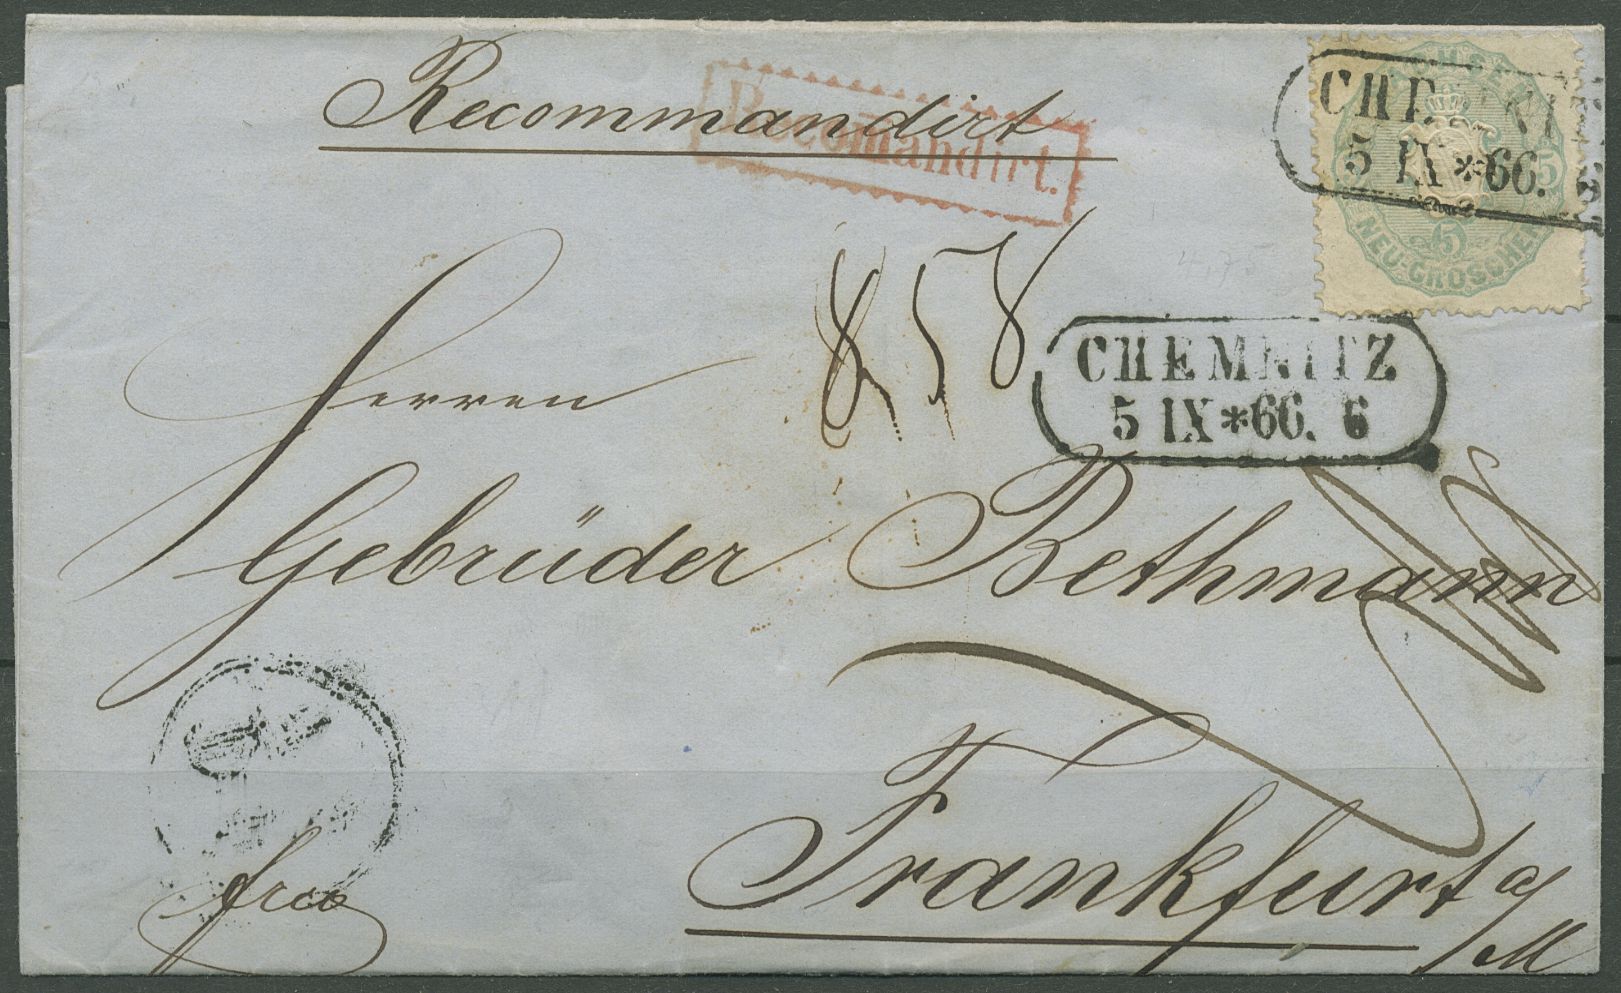 Recommandirt
Recomandirt.
CHEMNITZ
5 IX * 66.
5
5
NEU-GROSCHEN
858
CHEMNITZ
5 IX * 66. 6
Herren
Gebrüder Bethmann
Frankfurt a/M
frco